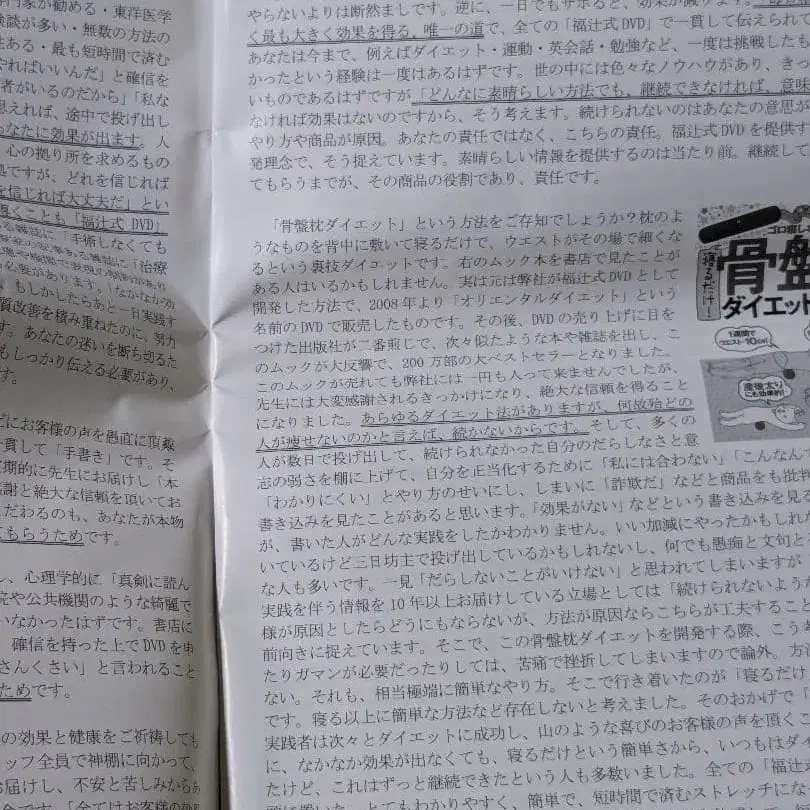 門家が勧める・東洋医学
談が多い・無数の方法の
ある・最も短時間で済む
やればいいんだ」と確信を
者がいるのだから」「私な
思えれば、途中で投げ出し
なたに効果が出ます。人
心の拠り所を求めるもの
ですが、どれを信じれば
を信じれば大丈夫だ」とい
くことも「福辻式 DVD」
「手術しなくても
必要があります。「なかなか効
もしかしたらあと一日実践す
質改善を積み重ねたのに、努力
す。あなたの迷いを断ち切るた
もしっかり伝える必要があり、
す。
どにお客様の声を愚直に頂戴
貫して「手書き」です。そ
期的に先生にお届けし「本
感謝と絶大な信頼を頂いてお
だわるのも、あなたが本物
もらうためです。
し、心理学的に「真剣に読ん
院や公共機関のような綺麗で
いなかったはずです。書店に
確信を持った上で DVD を申
さんくさい」と言われること
ためです。
の効果と健康をご祈祷しても
ッフ全員で神棚に向かって、
お届けし、不安と苦しみから
やらないよりは断然ましです。逆に、一日でもサボると、効果が減ります。
く最も大きく効果を得る、唯一の道で、全ての「福辻式 DVD」で一貫して伝えられて
あなたは今まで、例えばダイエット・運動・英会話・勉強など、一度は挑戦したも
かったという経験は一度はあるはずです。世の中には色々なノウハウがあり、きっ
いものであるはずですが「どんなに素晴らしい方法でも、継続できなければ、意味
なければ効果はないのですから、そう考えます。続けられないのはあなたの意思が
やり方や商品が原因。あなたの責任ではなく、こちらの責任。福辻式 DVD を提供す
発理念で、そう捉えています。素晴らしい情報を提供するのは当たり前。継続して
てもらうまでが、その商品の役割であり、責任です。
「骨盤枕ダイエット」という方法をご存知でしょうか？枕のよ
うなものを背中に敷いて寝るだけで、ウエストがその場で細くな
るという裏技ダイエットです。右のムック本を書店で見たことが
ある人はいるかもしれません。実は元は弊社が福辻式 DVD として
開発した方法で、2008 年より「オリエンタルダイエット」という
名前の DVD で販売したものです。その後、DVD の売り上げに目を
つけた出版社が二番煎じで、次々似たような本や雑誌を出し、こ
のムックが大反響で、200 万部の大ベストセラーとなりました。
このムックが売れても弊社には一円も入って来ませんでしたが、
先生には大変感謝されるきっかけになり、絶大な信頼を得ること
になりました。あらゆるダイエット法がありますが、何故殆どの
人が痩せないのかと言えば、続かないからです。そして、多くの
人が数日で投げ出して、続けられなかった自分のだらしなさと意
志の弱さを棚に上げて、自分を正当化するために「私には合わない」「こんなん
「わかりにくい」とやり方のせいにし、しまいに「詐欺だ」などと商品をも批判
書き込みを見たことがあると思います。「効果がない」などという書き込みを見
が、書いた人がどんな実践をしたかわかりません。いい加減にやったかもしれ
いているけど三日坊主で投げ出しているかもしれないし、何でも愚痴と文句と
な人も多いです。一見「だらしないことがいけない」と思われてしまいますが
実践を伴う情報を 10 年以上お届けしている立場としては「続けられないような
様が原因としたらどうにもならないが、方法が原因ならこちらが工夫すること
前向きに捉えています。そこで、この骨盤枕ダイエットを開発する際、こう
たりガマンが必要だったりしては、苦痛で挫折してしまいますので論外。方
ない。それも、相当極端に簡単なやり方。そこで行き着いたのが「寝るだけ
です。寝る以上に簡単な方法など存在しないと考えました。そのおかげで
実践者は次々とダイエットに成功し、山のような喜びのお客様の声を頂くこ
に、なかなか効果が出なくても、寝るだけという簡単さから、いつもはダイ
たけど、これはずっと継続できたという人も多数いました。全ての「福辻
とてもわかりやすく、簡単で、短時間で済むストレッチにな
寝るだけ!
骨盤
ダイエット
1週間で
ウエスト-10cm!
産後太り
にも効果的!